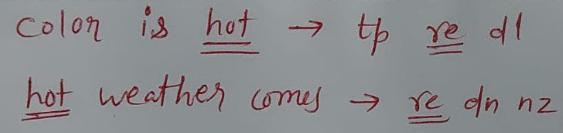 color is hot → tp re dl
hot weather comes → re dn nz